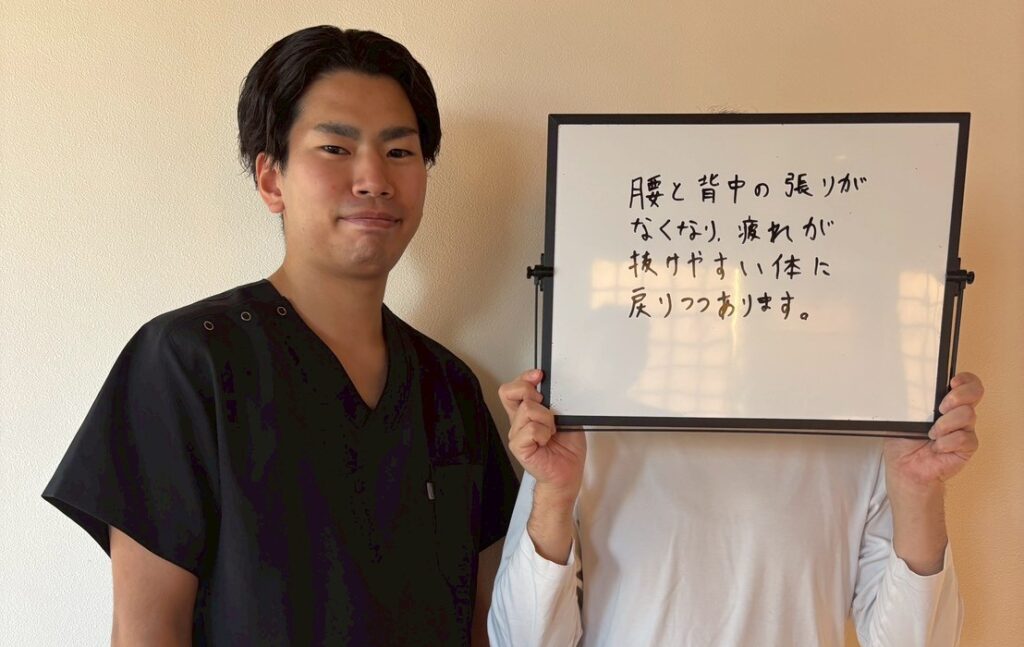 腰と背中の張りが
なくなり、疲れが
抜けやすい体に
戻りつつあります。